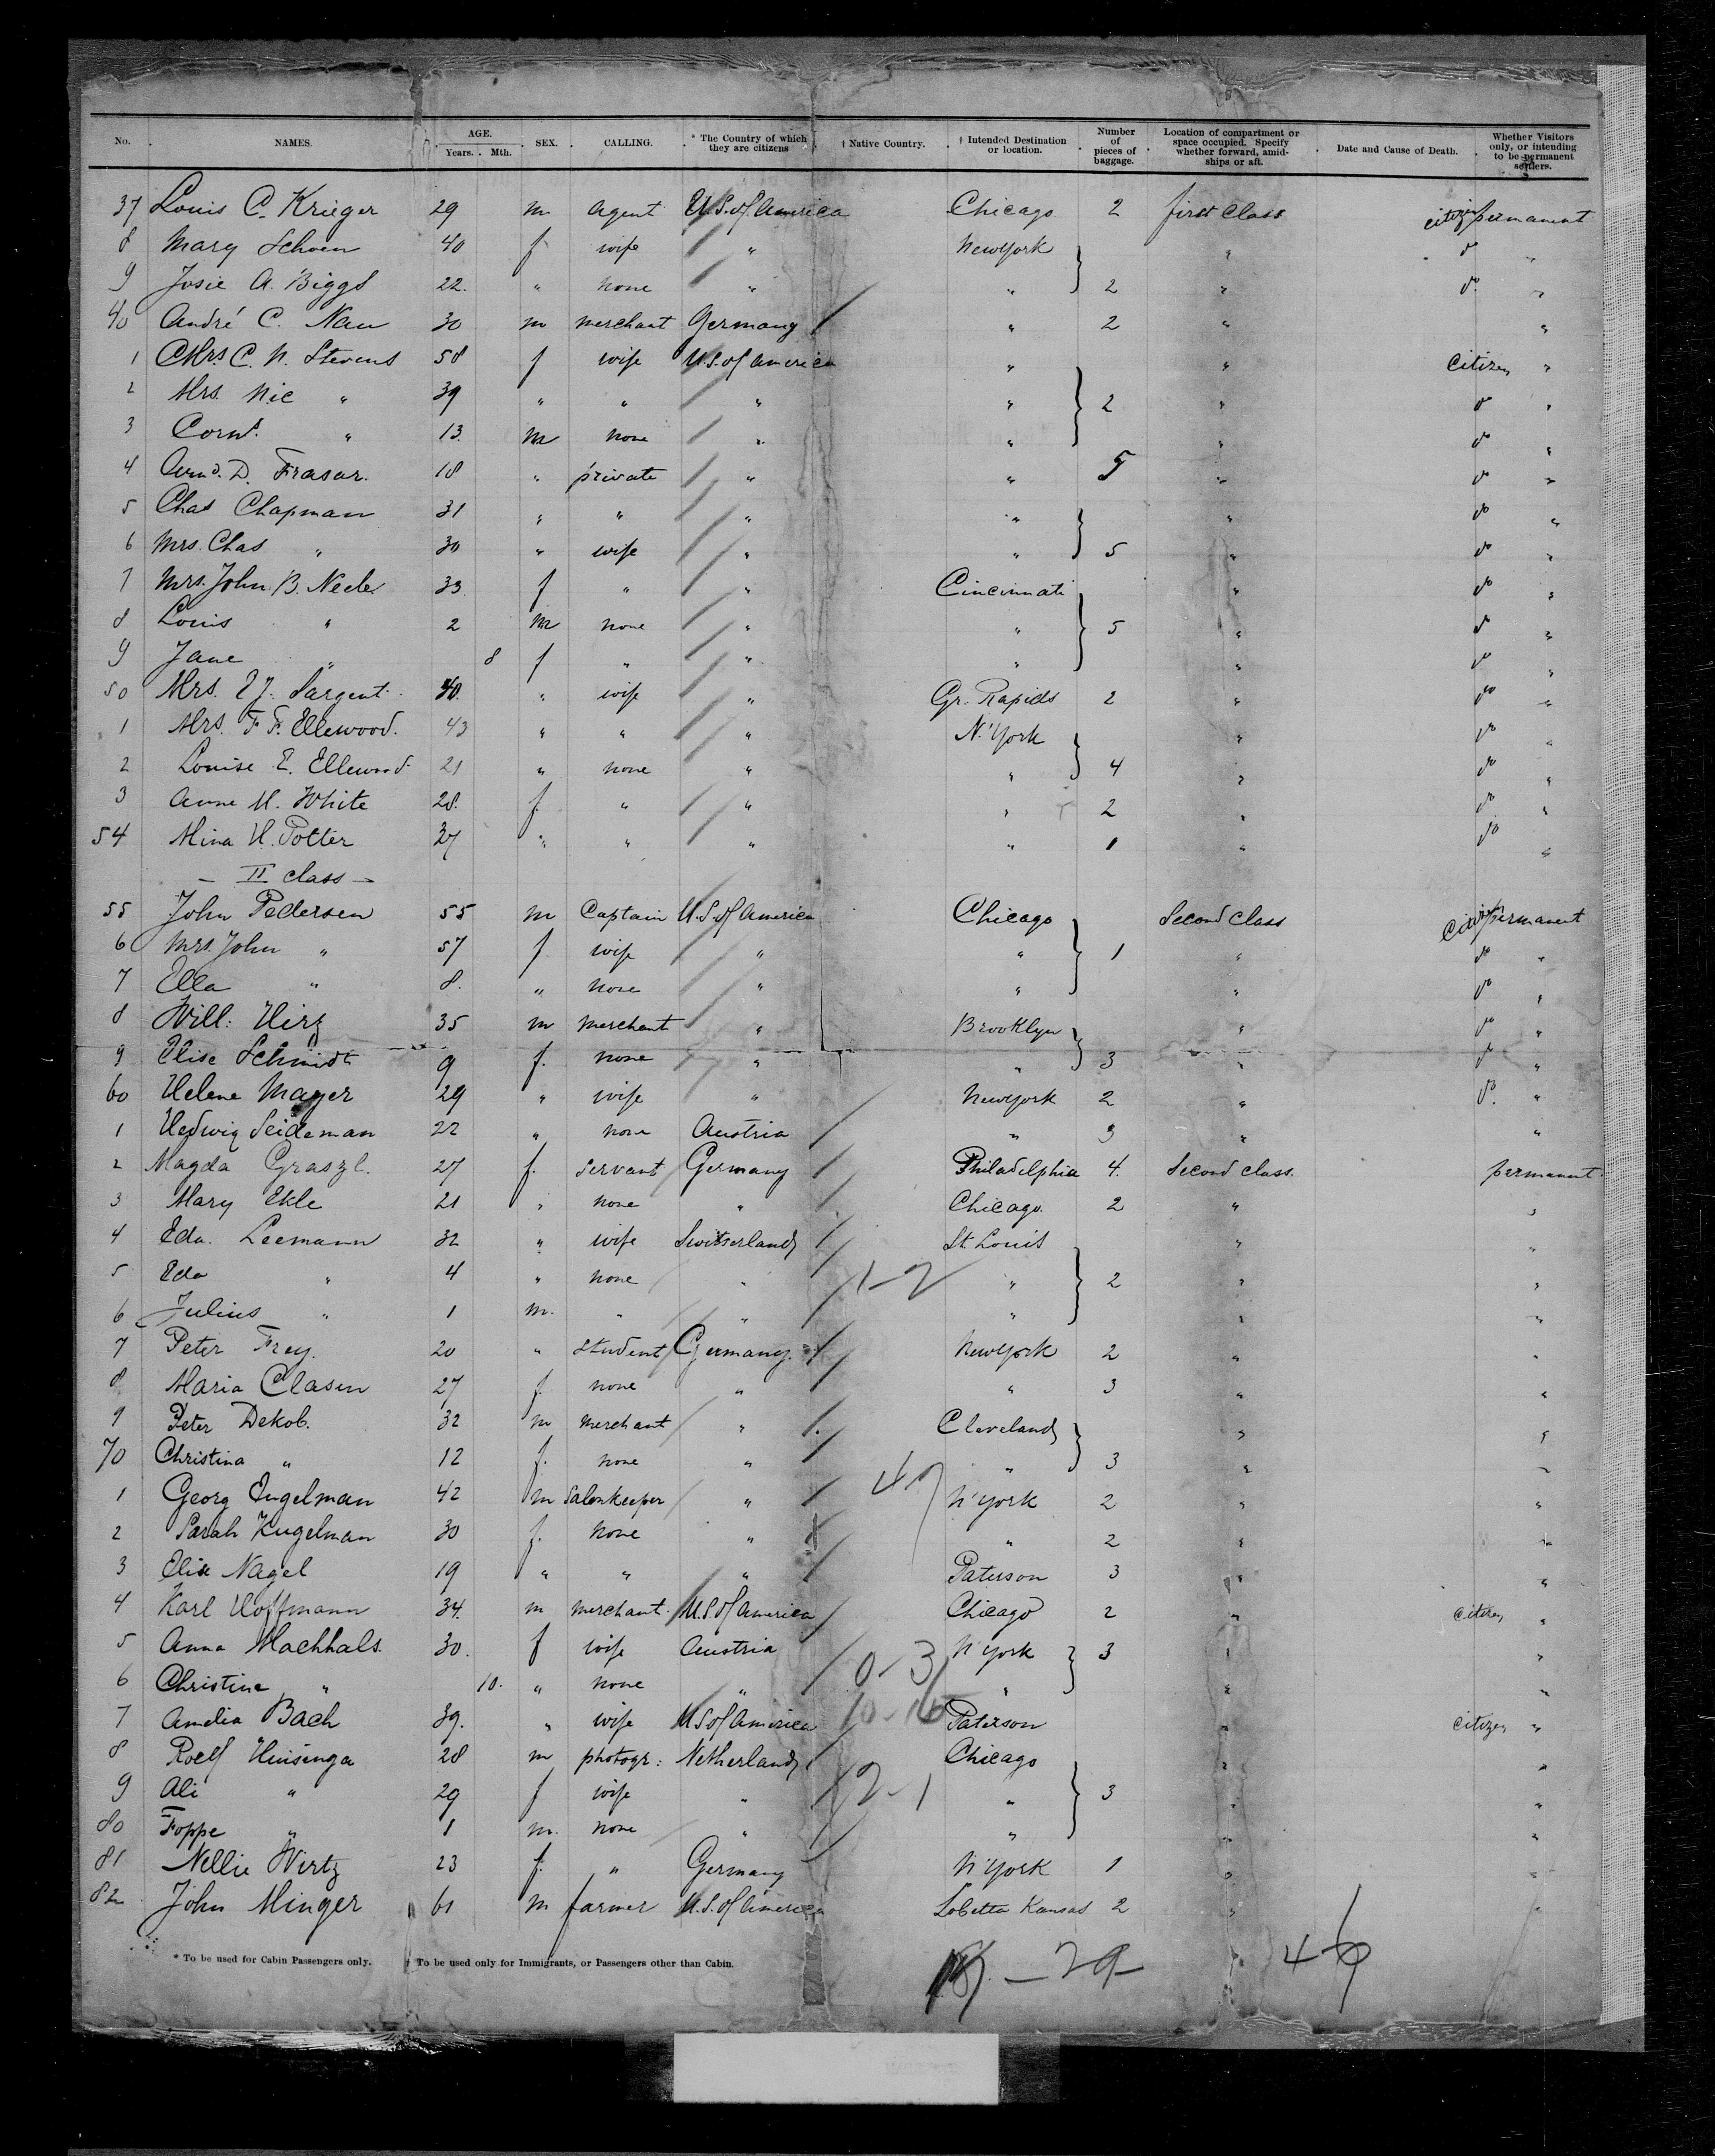 No. NAMES. AGE. Years. Mth. SEX. CALLING. * The Country of which they are citizens † Native Country. † Intended Destination or location. Number of pieces of baggage. Location of compartment or space occupied. Specify whether forward, amidships or aft. Date and Cause of Death. Whether Visitors only, or intending to be permanent settlers.
37 Louis C. Krieger 29 m Agent U.S. of America Chicago 2 first Class citizen permanent
8 Mary Schoen 40 f wife " New York " do "
9 Josie A. Biggs 22. " none " " 2 " do. "
40 André C. Nau 30 m merchant Germany " 2 " "
1 Mrs. C. N. Stevens 58 f wife U.S. of America " " Citizen "
2 Mrs. Nic " 39 " " " " 2 " do "
3 Corn. " 13. m none " " " do "
4 D. Frasar. 18 " private " " 5 " do "
5 Chas Chapman 31 " " " " " do "
6 Mrs. Chas " 30 " wife " " 5 " do "
7 Mrs. John B. 33 f " " Cincinnati " do "
8 Louis " 2 m none " " 5 " do "
9 Jane " 8 f " " " " do "
50 Mrs. Sargent 40. " wife " Gr. Rapids 2 " do "
1 Mrs. F. F. Ellewood. 43 " " " N. York " do "
2 Louise E. Ellewood 21 " none " " 4 " do "
3 Anne M. White 28. f. " " " 2 " do "
54 Mina H. Potter 37 " " " " 1 " do "
— II class —
55 John Pedersen 55 m Captain U.S. of America Chicago Second Class Citizen permanent
6 Mrs. John " 57 f wife " " 1 " do "
7 Ella " 8. " none " " " do "
8 Will: Hirz 35 m merchant " Brooklyn " do "
9 Elise Schmidt 9 f. none " " 3 " do "
60 Helene Mayer 29 " wife " New York 2 " do. "
1 Hedwig Seideman 22 " none Austria " 3 " "
2 Magda Graszl. 27 f. Servant Germany Philadelphia 4. Second class. permanent.
3 Mary Ekle 21 " none " Chicago. 2 " "
4 Eda. Leemann 32 " wife Switserland St. Louis " "
5 Eda " 4 " none " 1-2 " 2 " "
6 Julius " 1 m. " " " " "
7 Peter Frey. 20 " Student Germany. New York 2 " "
8 Maria Clasen 27 f. none " " 3 " "
9 Peter Dekob. 32 m merchant " Cleveland " "
70 Christina " 12 f. none " " 3 " "
1 Georg Engelman 42 m Salonkeeper " N'York 2 " "
2 Sarah Kugelman 30 f. none " " 2 " "
3 Elise Nagel 19 " " " Paterson 3 " "
4 Karl Hoffmann 34. m merchant. U.S. of America Chicago 2 " Citizen "
5 Anna Machhals. 30. f wife Austria 0-3 N'York 3 " "
6 Christine " 10. " none " " " "
7 Amelia Bach 39. " wife U.S of America Paterson " Citizen "
8 Roelf Huisinga 28 m photogr: Netherlands Chicago " "
9 Ali " 29 f wife " 2-1 " 3 " "
80 Foppe " 1 m. none " " " "
81 Nellie Wirtz 23 f. " Germany N'York 1 " "
82 John Minger 61 m farmer U.S. of America Kansas 2 " "
* To be used for Cabin Passengers only. † To be used only for Immigrants, or Passengers other than Cabin.